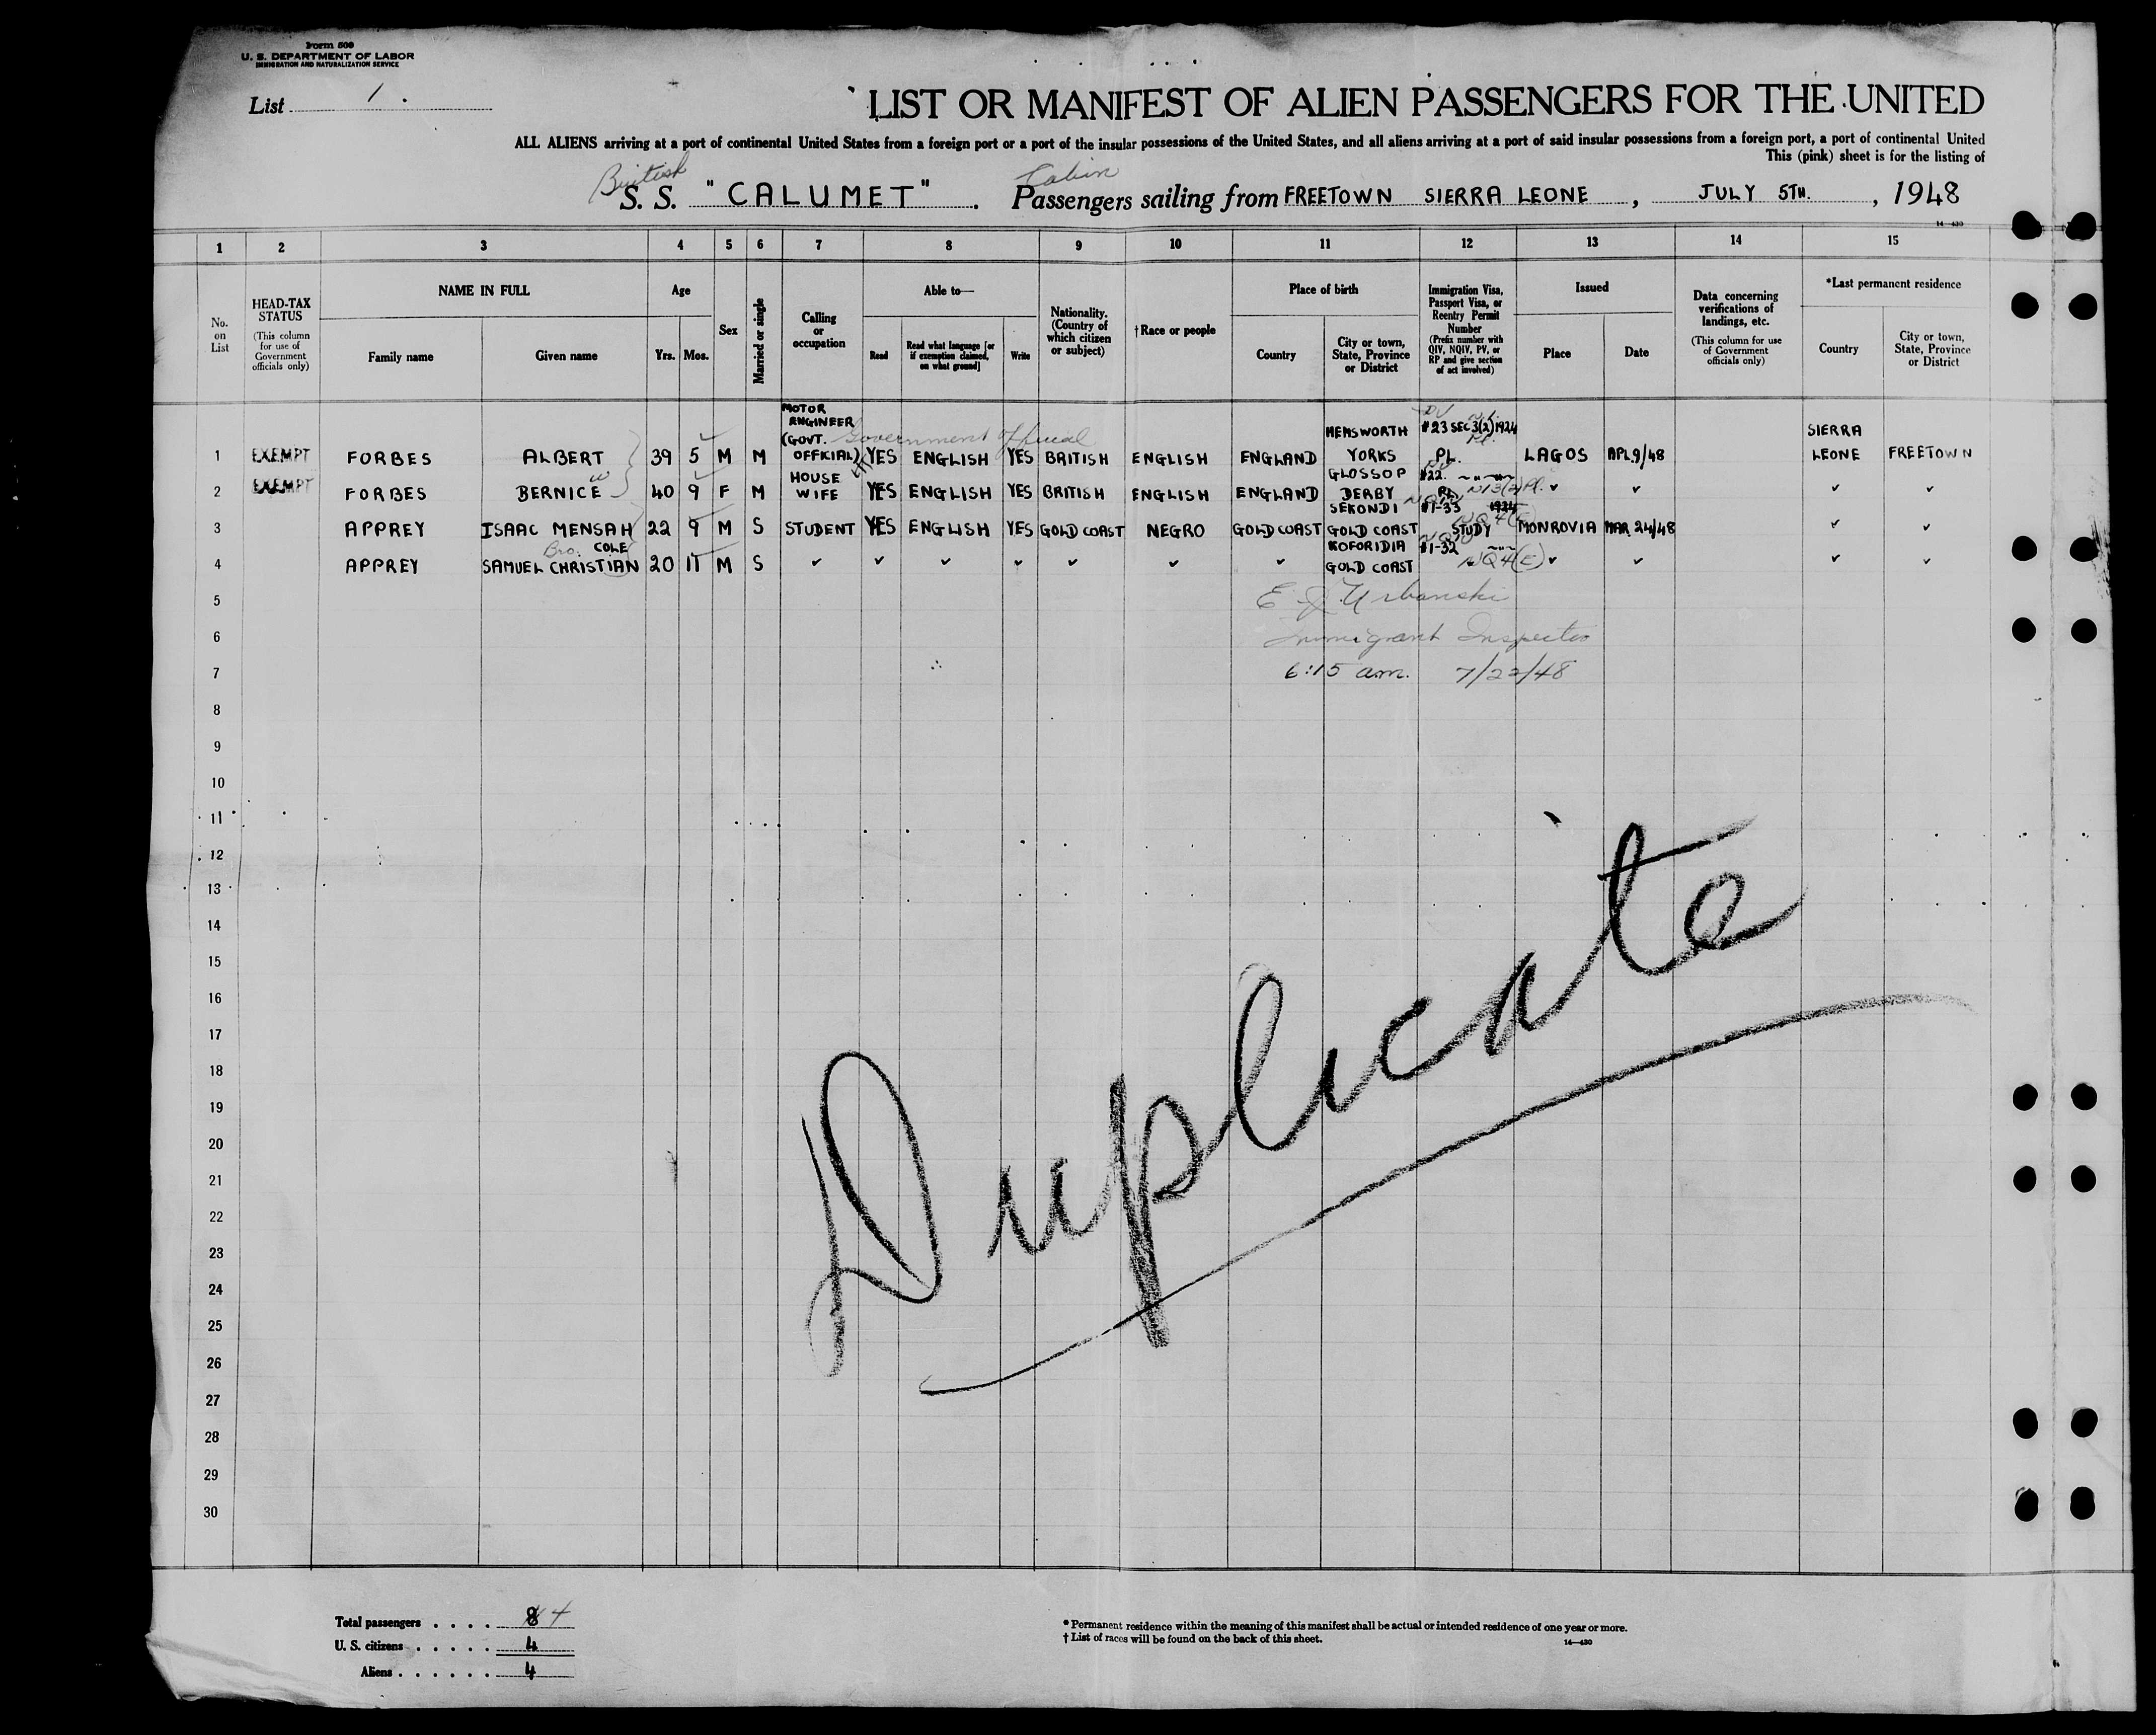 Form 500
U. S. DEPARTMENT OF LABOR
IMMIGRATION AND NATURALIZATION SERVICE
List 1.
LIST OR MANIFEST OF ALIEN PASSENGERS FOR THE UNITED
ALL ALIENS arriving at a port of continental United States from a foreign port or a port of the insular possessions of the United States, and all aliens arriving at a port of said insular possessions from a foreign port, a port of continental United
This (pink) sheet is for the listing of
British Cabin
S. S. "CALUMET". Passengers sailing from FREETOWN SIERRA LEONE, JULY 5TH., 1948
14—430
1 2 3 4 5 6 7 8 9 10 11 12 13 14 15
No. on List
HEAD-TAX STATUS
(This column for use of Government officials only)
NAME IN FULL
Family name Given name
Age
Yrs. Mos.
Sex
Married or single
Calling or occupation
Able to—
Read
Read what language [or if exemption claimed, on what ground]
Write
Nationality. (Country of which citizen or subject)
†Race or people
Place of birth
Country
City or town, State, Province or District
Immigration Visa, Passport Visa, or Reentry Permit Number
(Prefix number with QIV, NQIV, PV, or RP and give section of act involved)
Issued
Place Date
Data concerning verifications of landings, etc.
(This column for use of Government officials only)
*Last permanent residence
Country
City or town, State, Province or District
1 EXEMPT FORBES ALBERT 39 5 M M MOTOR ENGINEER (GOVT. OFFICIAL) Government Official YES ENGLISH YES BRITISH ENGLISH ENGLAND HEMSWORTH YORKS PV #23 SEC 3(2) 1924 PL. LAGOS APL 9/48 SIERRA LEONE FREETOWN
2 EXEMPT FORBES BERNICE W 40 9 F M HOUSE WIFE YES ENGLISH YES BRITISH ENGLISH ENGLAND GLOSSOP DERBY PV #22. ~ " ~ " ~ PL ✓ ✓ ✓ ✓
3 APPREY ISAAC MENSAH 22 9 M S STUDENT YES ENGLISH YES GOLD COAST NEGRO GOLD COAST SEKONDI GOLD COAST #1-33 1924 STUDY MONROVIA MAR 24/48 ✓ ✓
4 APPREY Bro. COLE SAMUEL CHRISTIAN 20 11 M S ✓ ✓ ✓ ✓ ✓ ✓ ✓ KOFORIDIA GOLD COAST #1-32 ~ " ~ NQ4(E) ✓ ✓ ✓ ✓
5
E J Urbanski
6
Immigrant Inspector
7
6:15 am. 7/22/48
8
9
10
11
12
13
14
15
16
17
18
19
20
21
22
23
24
25
26
27
28
29
30
Duplicate
Total passengers . . . . 8 4
U. S. citizens . . . . . 4
Aliens . . . . . . 4
* Permanent residence within the meaning of this manifest shall be actual or intended residence of one year or more.
† List of races will be found on the back of this sheet.
14—430